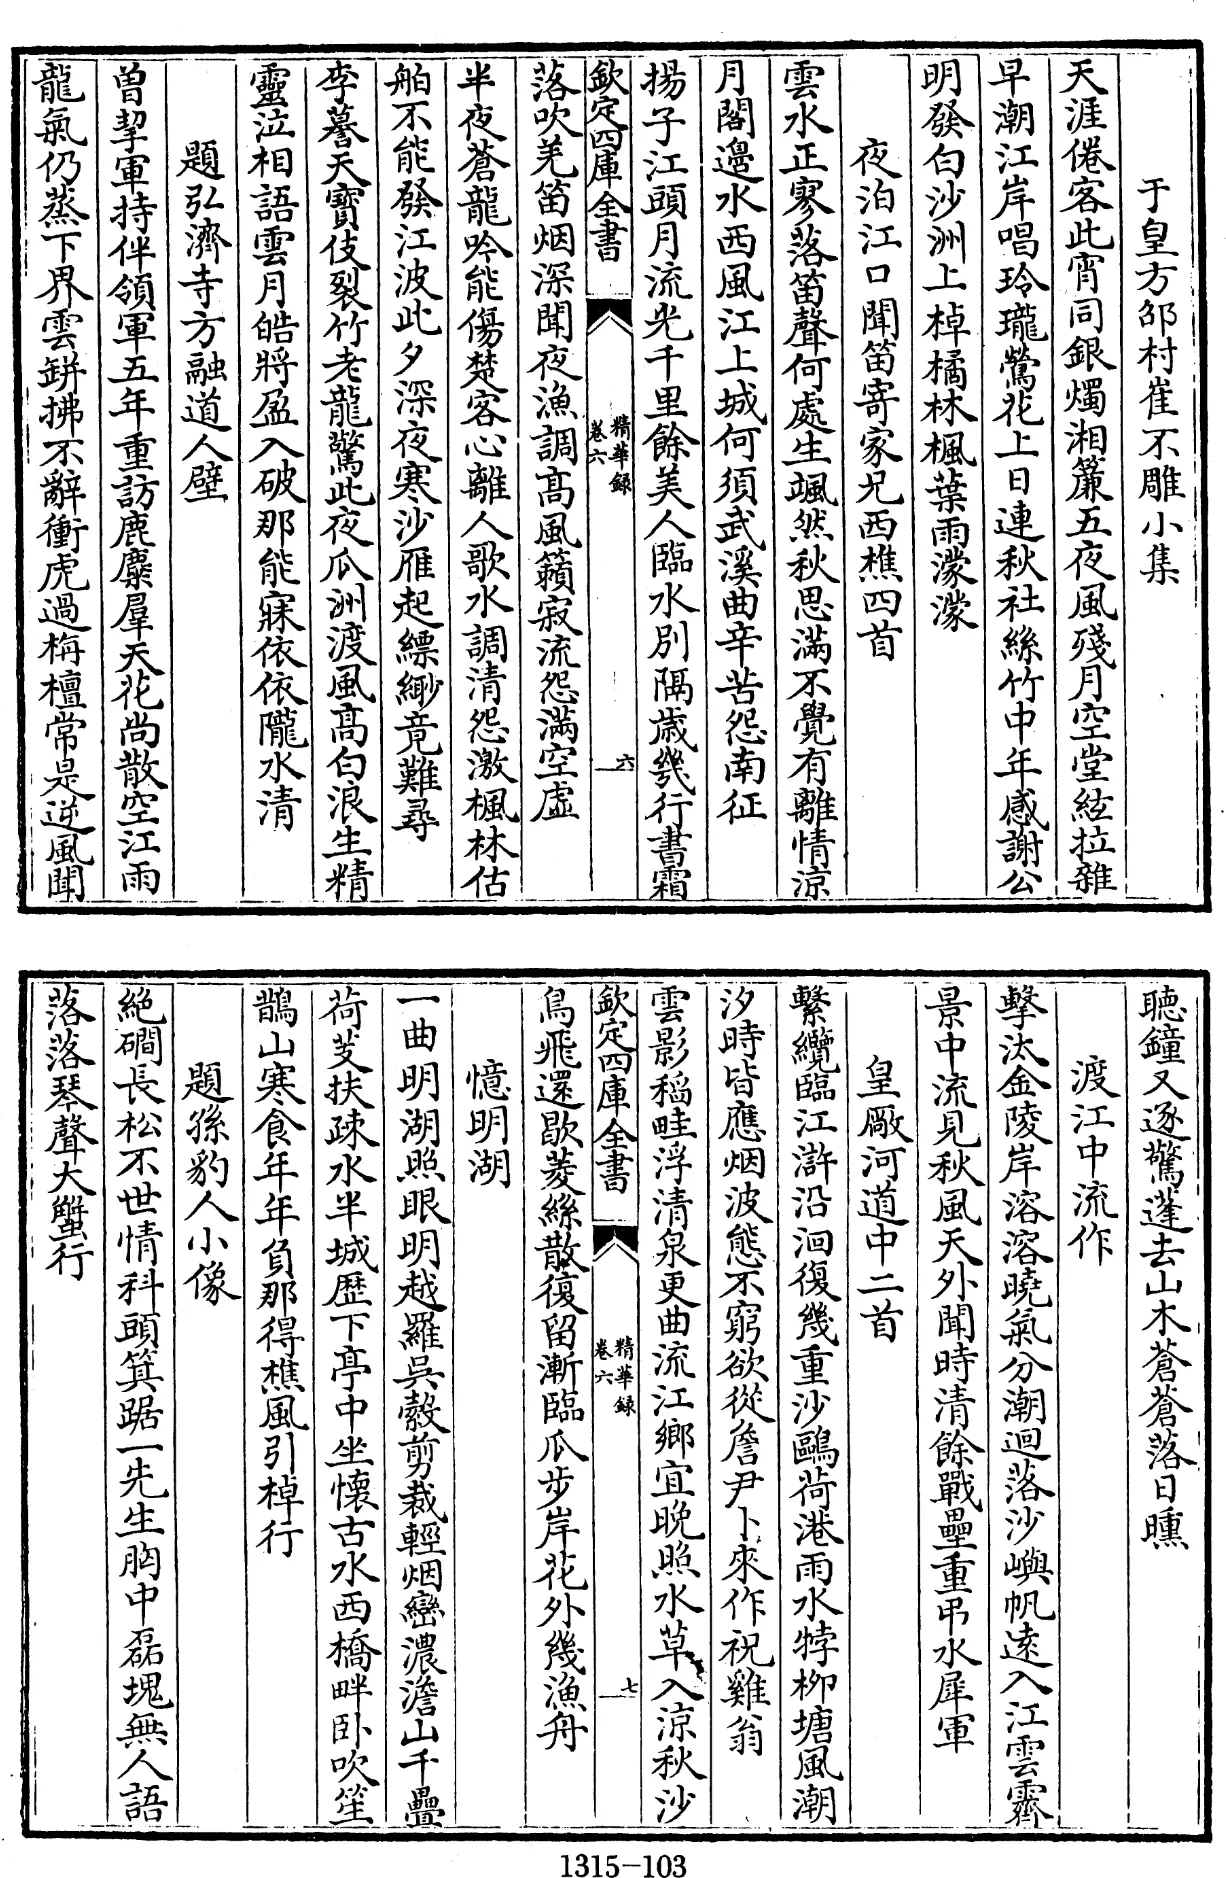 于皇方邵村崔不雕小集
天涯倦客此宵同銀燭湘簾五夜風殘月空堂絃拉雜
早潮江岸唱玲瓏鶯花上日連秋社絲竹中年感謝公
明發白沙洲上棹橘林楓葉雨濛濛
夜泊江口聞笛寄家兄西樵四首
雲水正寥落笛聲何處生颯然秋思滿不覺有離情涼
月閣邊水西風江上城何須武溪曲辛苦怨南征
揚子江頭月流光千里餘美人臨水別隔歲幾行書霜
欽定四庫全書
精華錄
卷六
六
落吹羌笛烟深聞夜漁調高風籟寂流怨滿空虛
半夜蒼龍吟能傷楚客心離人歌水調清怨激楓林估
舶不能發江波此夕深夜寒沙雁起縹緲竟難尋
李謩天寶伎裂竹老龍驚此夜瓜洲渡風高白浪生精
靈泣相語雲月皓將盈入破那能寐依依隴水清
題弘濟寺方融道人壁
曽挈軍持伴領軍五年重訪鹿麋羣天花尚散空江雨
龍氣仍蒸下界雲缾拂不辭衝虎過栴檀常是逆風聞
聽鐘又逐驚蓬去山木蒼蒼落日曛
渡江中流作
擊汰金陵岸溶溶曉氣分潮迴落沙嶼帆遠入江雲霽
景中流見秋風天外聞時清餘戰壘重弔水犀軍
皇厰河道中二首
繫纜臨江滸沿洄復幾重沙鷗荷港雨水牸栁塘風潮
汐時皆應烟波態不窮欲從詹尹卜來作祝雞翁
雲影稻畦浮清泉更曲流江鄉宜晚照水草入涼秋沙
欽定四庫全書
精華錄
卷六
七
鳥飛還歇菱絲散復留漸臨瓜步岸花外幾漁舟
憶明湖
一曲明湖照眼明越羅吳縠剪裁輕烟巒濃澹山千疊
荷芰扶疎水半城歷下亭中坐懷古水西橋畔卧吹笙
鵲山寒食年年負那得樵風引棹行
題孫豹人小像
絕磵長松不世情科頭箕踞一先生胸中磊塊無人語
落落琴聲大蠏行
1315-103